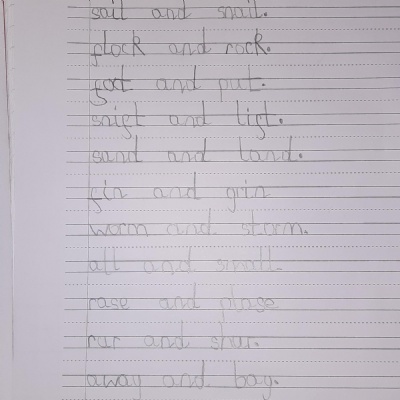 sail and snail.
flock and rock.
foot and put.
snigt and ligt.
sand and land.
fin and grin
worm and storm.
all and small.
rase and plase
rur and shur.
away and bay.